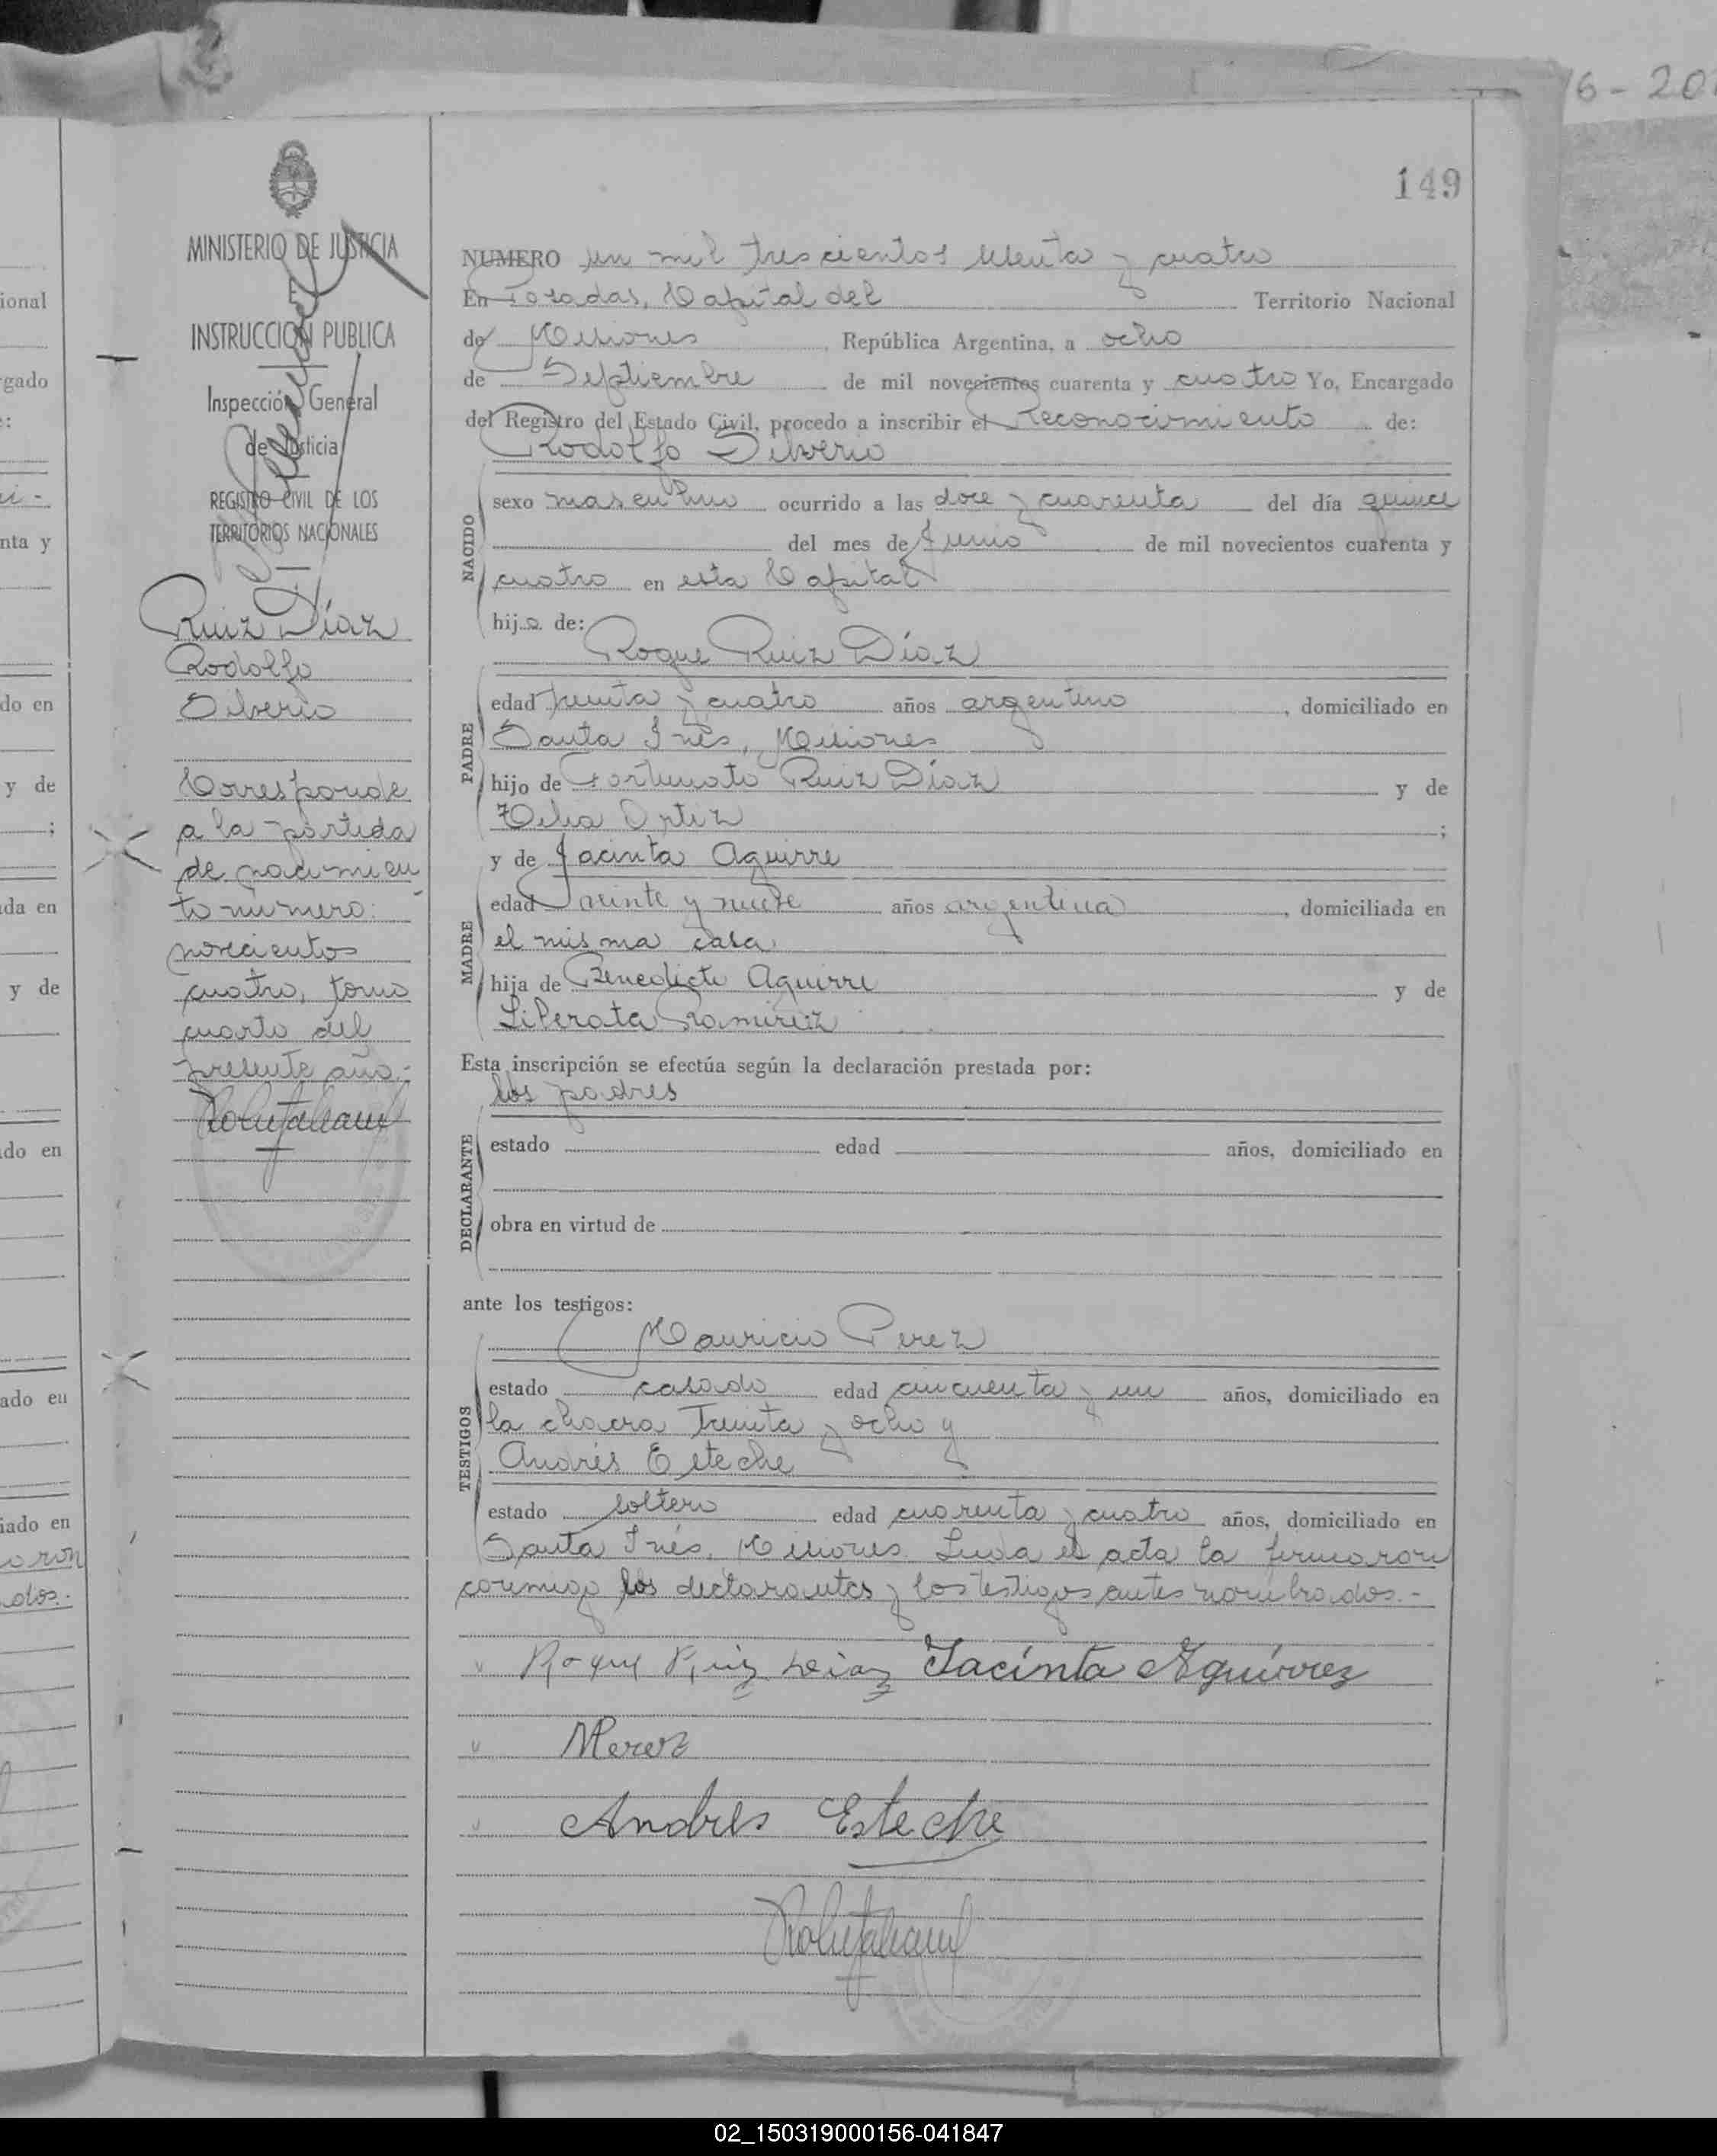 6-20
149
MINISTERIO DE JUSTICIA
INSTRUCCION PUBLICA
Inspección General
de Justicia
REGISTRO CIVIL DE LOS
TERRITORIOS NACIONALES
Ruiz Díaz
Rodolfo
Silverio
Corresponde
a la partida
de nacimien
to número:
novecientos
cuatro, tomo
cuarto del
presente año.-
NUMERO un mil trescientos setenta y cuatro
En Posadas, Capital del Territorio Nacional
de Misiones, República Argentina, a ocho
de Septiembre de mil novecientos cuarenta y cuatro Yo, Encargado
del Registro del Estado Civil, procedo a inscribir el Reconocimiento de:
Rodolfo Silverio
NACIDO
sexo masculino ocurrido a las doce y cuarenta del día quince
del mes de Junio de mil novecientos cuarenta y
cuatro en esta Capital
hijo de:
Roque Ruiz Díaz
PADRE
edad treinta y cuatro años argentino, domiciliado en
Santa Inés, Misiones
hijo de Fortunato Ruiz Díaz y de
Ortiz ;
y de Jacinta Aguirre
MADRE
edad veinte y nueve años argentina, domiciliada en
el misma casa
hija de Benedicto Aguirre y de
Liberata Ramirez
Esta inscripción se efectúa según la declaración prestada por:
los padres
DECLARANTE
estado edad años, domiciliado en
obra en virtud de
ante los testigos:
Mauricio Perez
TESTIGOS
estado casado edad cincuenta y un años, domiciliado en
la chacra Treinta y ocho y
Andrés Esteche
estado soltero edad cuarenta y cuatro años, domiciliado en
Santa Inés, Misiones. Leida el acta la firmaron
conmigo los declarantes y los testigos antes nombrados.-
Roque Ruiz Deiaz Jacinta Aguirrez
MPerez
Andres Esteche
02_150319000156-041847